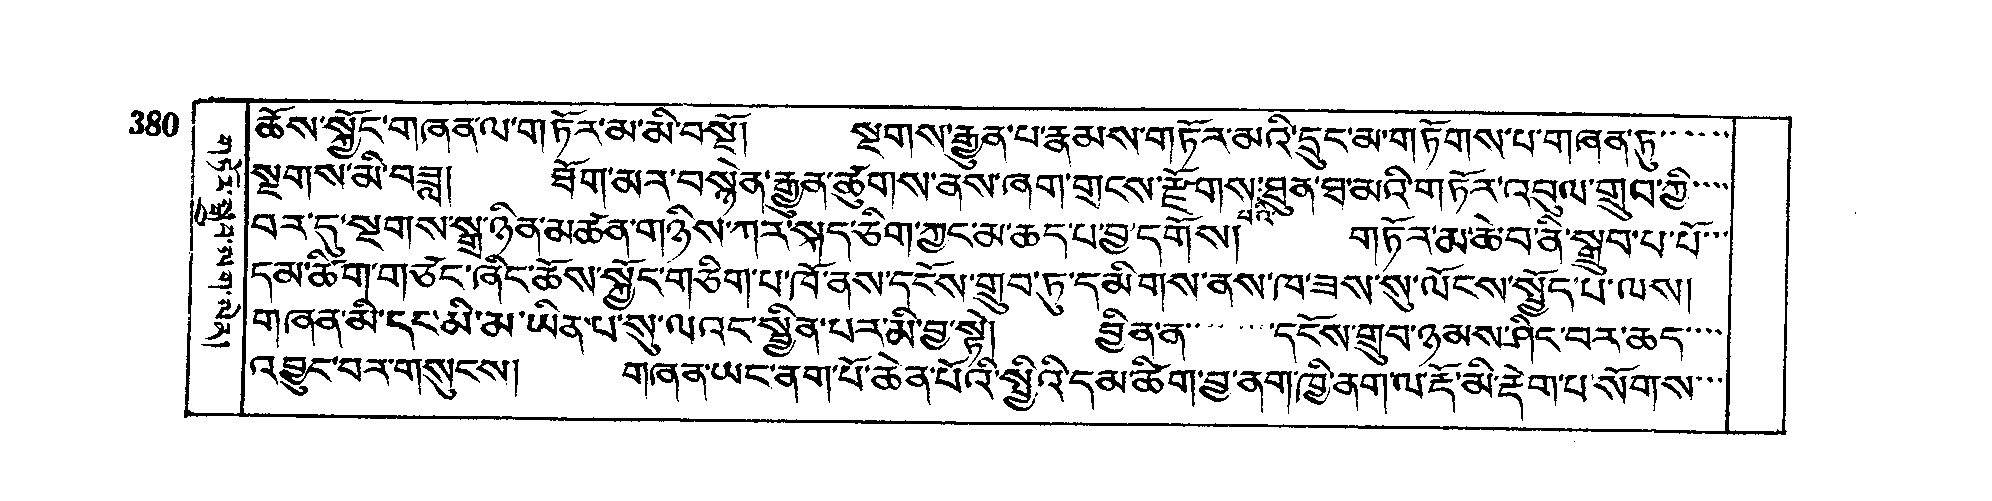 380
གཏོར་སྒྲུབ་ལག་ལེན།
ཆོས་སྐྱོང་གཞན་ལ་གཏོར་མ་མི་བསྔོ། སྔགས་རྒྱུན་པ་རྣམས་གཏོར་མའི་དྲུང་མ་གཏོགས་པ་གཞན་ཏུ་
སྔགས་མི་བཟླ། ཐོག་མར་བསྙེན་རྒྱུན་ཚུགས་ནས་ཞག་གྲངས་རྫོགས་པའི་ཐུན་ཐ་མའི་གཏོར་འབུལ་གྲུབ་ཀྱི་
བར་དུ་སྔགས་སྒྲ་ཉིན་མཚན་གཉིས་ཀར་སྐད་ཅིག་ཀྱང་མ་ཆད་པ་བྱ་དགོས། གཏོར་མ་ཆེ་བ་ནི་སྒྲུབ་པ་པོ་
དམ་ཚིག་གཙང་ཞིང་ཆོས་སྐྱོང་གཅིག་པ་ཁོ་ནས་དངོས་གྲུབ་ཏུ་དམིགས་ནས་ཁ་ཟས་སུ་ལོངས་སྤྱོད་པ་ལས།
གཞན་མི་དང་མི་མ་ཡིན་པ་སུ་ལའང་སྦྱིན་པར་མི་བྱ་སྟེ། བྱིན་ན་ དངོས་གྲུབ་ཉམས་ཤིང་བར་ཆད་
འབྱུང་བར་གསུངས། གཞན་ཡང་ནག་པོ་ཆེན་པོའི་སྤྱིའི་དམ་ཚིག་བྱ་ནག་ཁྱི་ནག་ལ་རྡོ་མི་རྡེག་པ་སོགས་